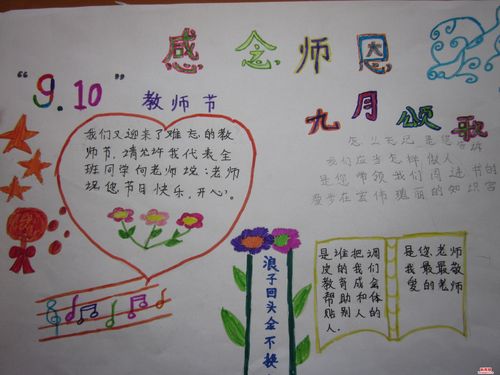 感念师恩
"9.10"
教师节
九月颂歌
我们又迎来了难忘的教
师节,请允许我代表全
班同学向老师说:老师
祝您节日快乐,开心。
怎么忘记是您
我们应当怎样做人
是您带领我们阅进书的
瑰丽的知识宫
浪子回头金不换
是谁把调
皮的我们
教育成会
帮助和体
贴别人的
人.
是您,老师
我最最敬
爱的老师